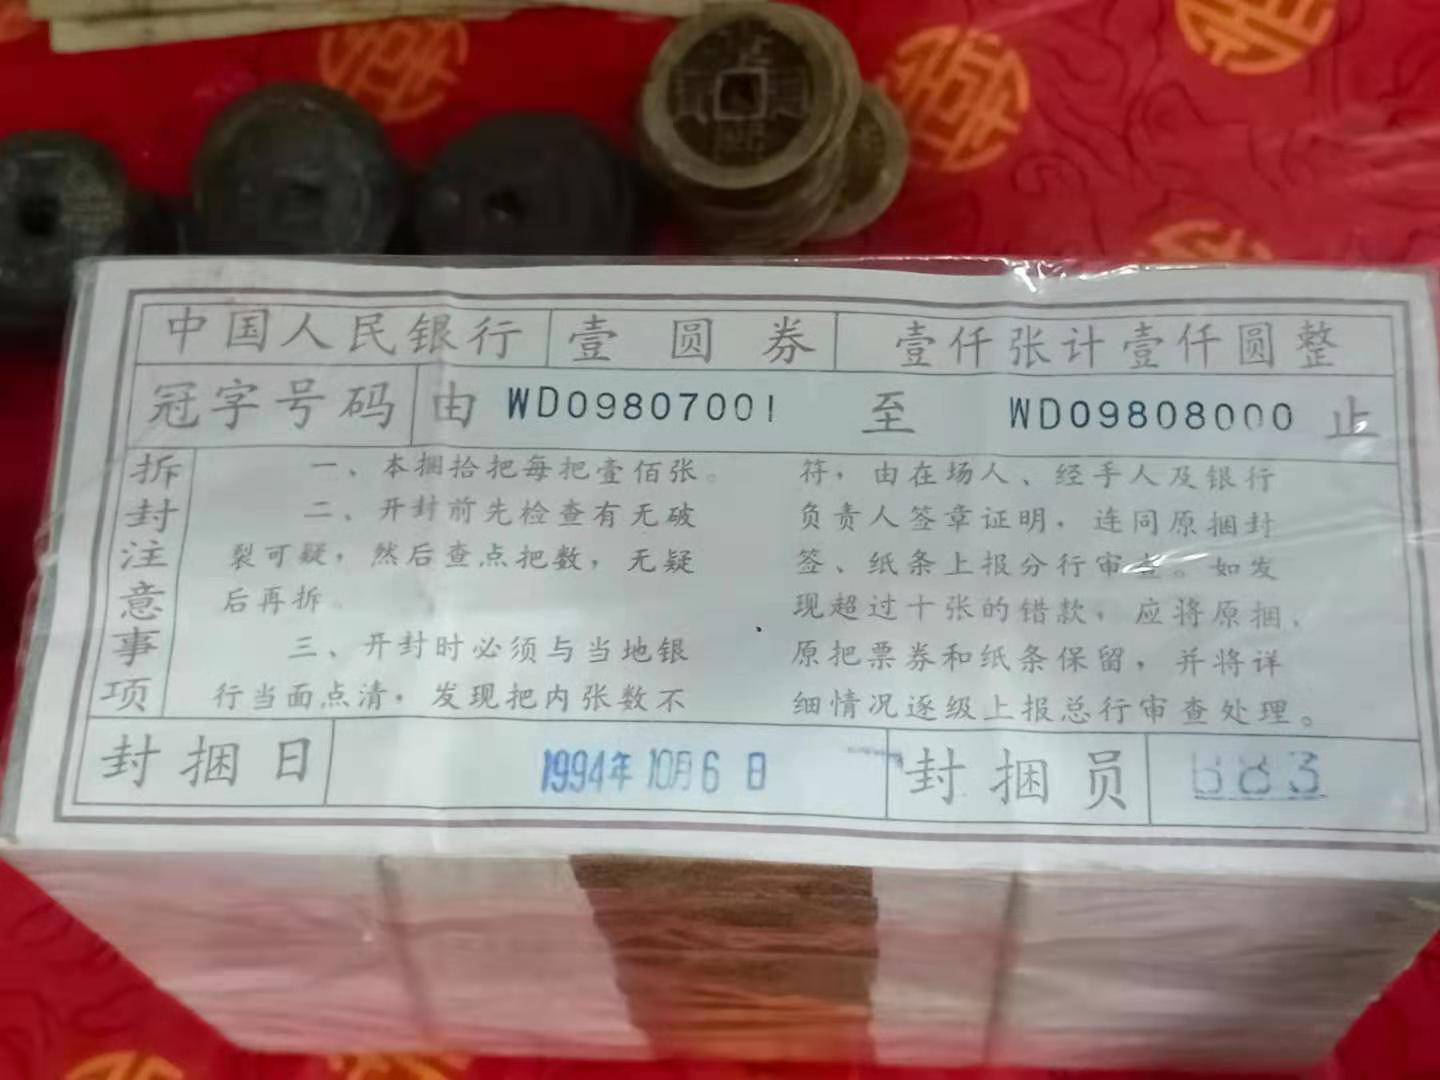 中国人民银行 壹圆券 壹仟张计壹仟圆整
冠字号码 由 WD09807001 至 WD09808000 止
拆封注意事项
一、本捆拾把每把壹佰张。
二、开封前先检查有无破
裂可疑，然后查点把数，无疑
后再拆。
三、开封时必须与当地银
行当面点清，发现把内张数不
符，由在场人、经手人及银行
负责人签章证明，连同原捆封
签、纸条上报分行审查。如发
现超过十张的错款，应将原捆、
原把票券和纸条保留，并将详
细情况逐级上报总行审查处理。
封捆日 1994年10月6日 封捆员